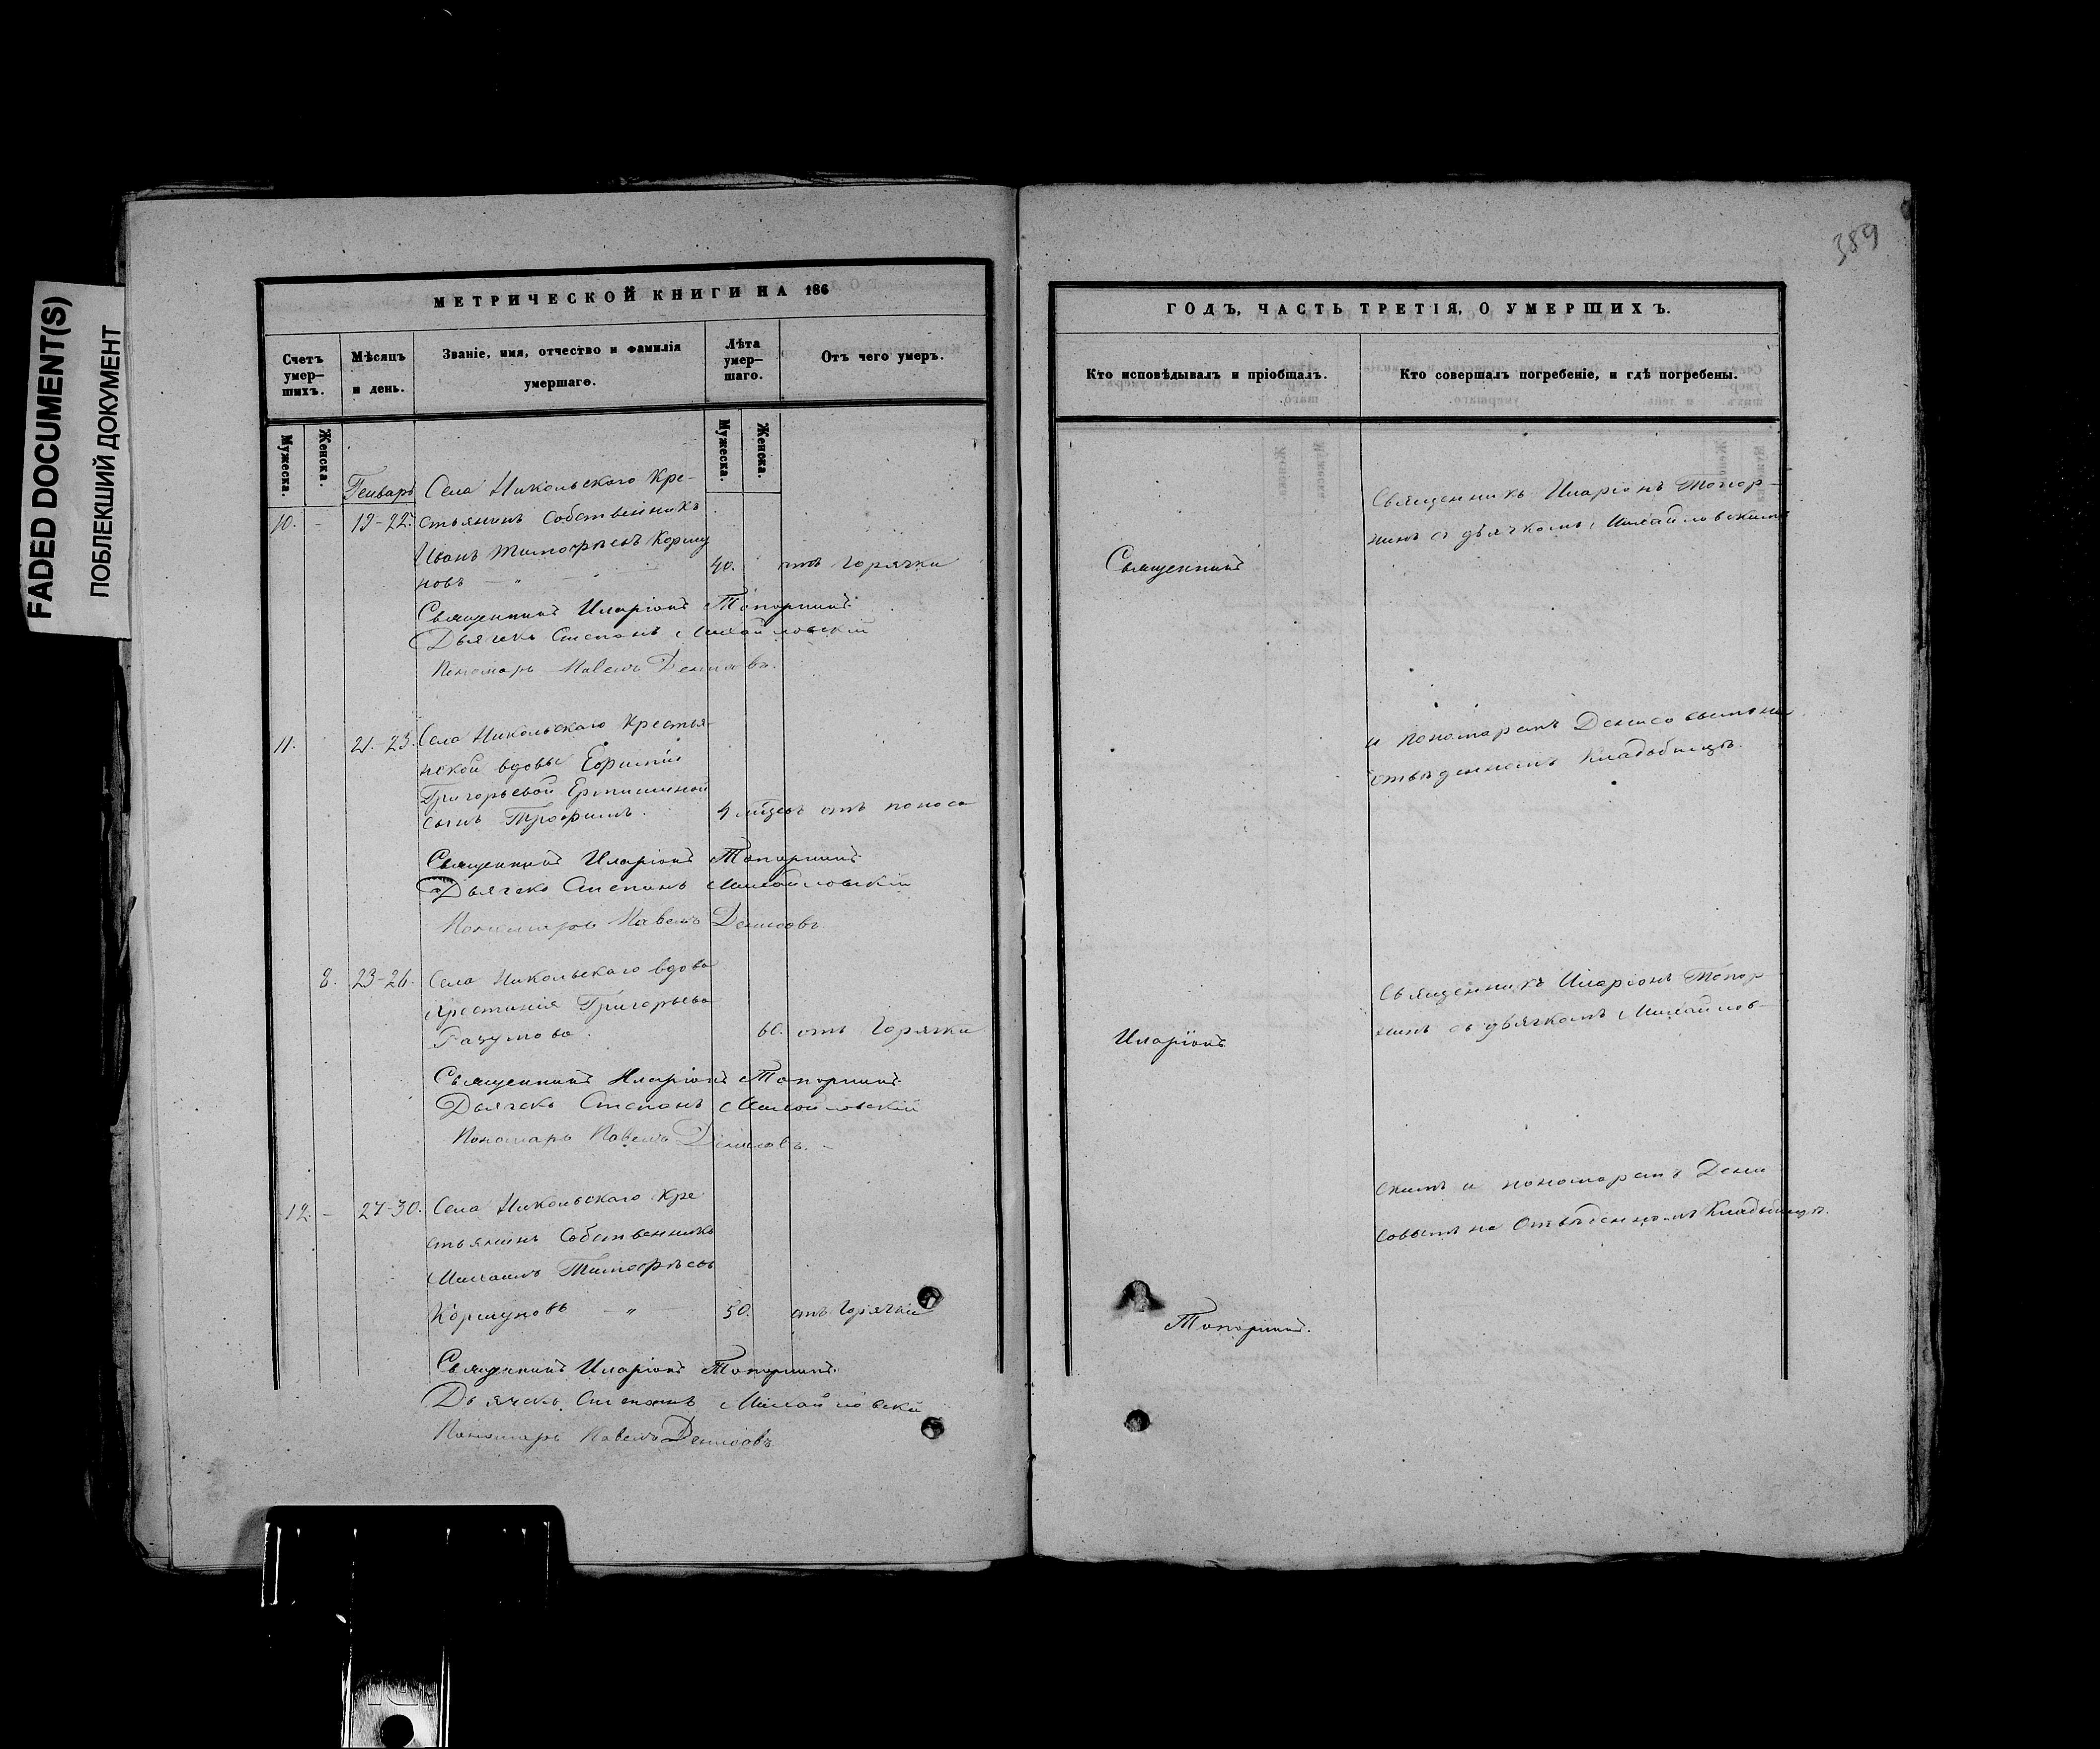 FADED DOCUMENT(S)
ПОБЛЕКШИЙ ДОКУМЕНТ
МЕТРИЧЕСКОЙ КНИГИ НА 186
Счетъ умер–шихъ.
Мѣсяцъ и день.
Званіе, имя, отчество и фамилія умершаго.
Лѣта умер–шаго.
Отъ чего умеръ.
Мужеска.
Женска.
Мужеска.
Женска.
Генварь
Села Никольскаго Кре-
10. - 19-22. стьянинъ Собственникъ
Иванъ Тимофѣевъ Коршу
новъ — „ — 40. отъ горячки
Священникъ Иларіонъ Топорнинъ.
Дьячекъ Степанъ Михайловскій
Пономарь Павелъ Денисовъ.
11. 21-23. Села Никольскаго Крестья-
нской вдовы Ефиміи
Григорьевой
сынъ Трофимъ. 4 мѣсцевъ отъ поноса
Священникъ Иларіонъ Топорнинъ
Дьячекъ Степанъ Михайловскій
Пономарь Павелъ Денисовъ.
8. 23-26. Села Никольскаго вдова
Христинія Григорьева
Разумова. 60. отъ Горячки
Священникъ Иларіонъ Топорнинъ.
Дьячекъ Степанъ Михайловскій
Пономарь Павелъ Денисовъ. -
12. - 27-30. Села Никольскаго Кре
стьянинъ Собственникъ
Михаилъ Тимофѣевъ
Коршуновъ — „ — 50. отъ Горячки
Священникъ Иларіонъ Топорнинъ.
Дьячекъ Степанъ Михайловскій
Пономарь Павелъ Денисовъ
389
ГОДЪ, ЧАСТЬ ТРЕТІЯ, О УМЕРШИХЪ.
Кто исповѣдывалъ и пріобщалъ.
Кто совершалъ погребеніе, и гдѣ погребены.
Священникъ
Иларіонъ
Топорнинъ.
Священникъ Иларіонъ Топор-
нинъ съ дьячкомъ Михайловскимъ
и пономаремъ Денисовымъ на
отведенномъ Кладбищѣ.
Священникъ Иларіонъ Топор
нинъ съ дьячкомъ Михайлов-
скимъ и пономаремъ Дени
совымъ на Отведенномъ Кладбищѣ.